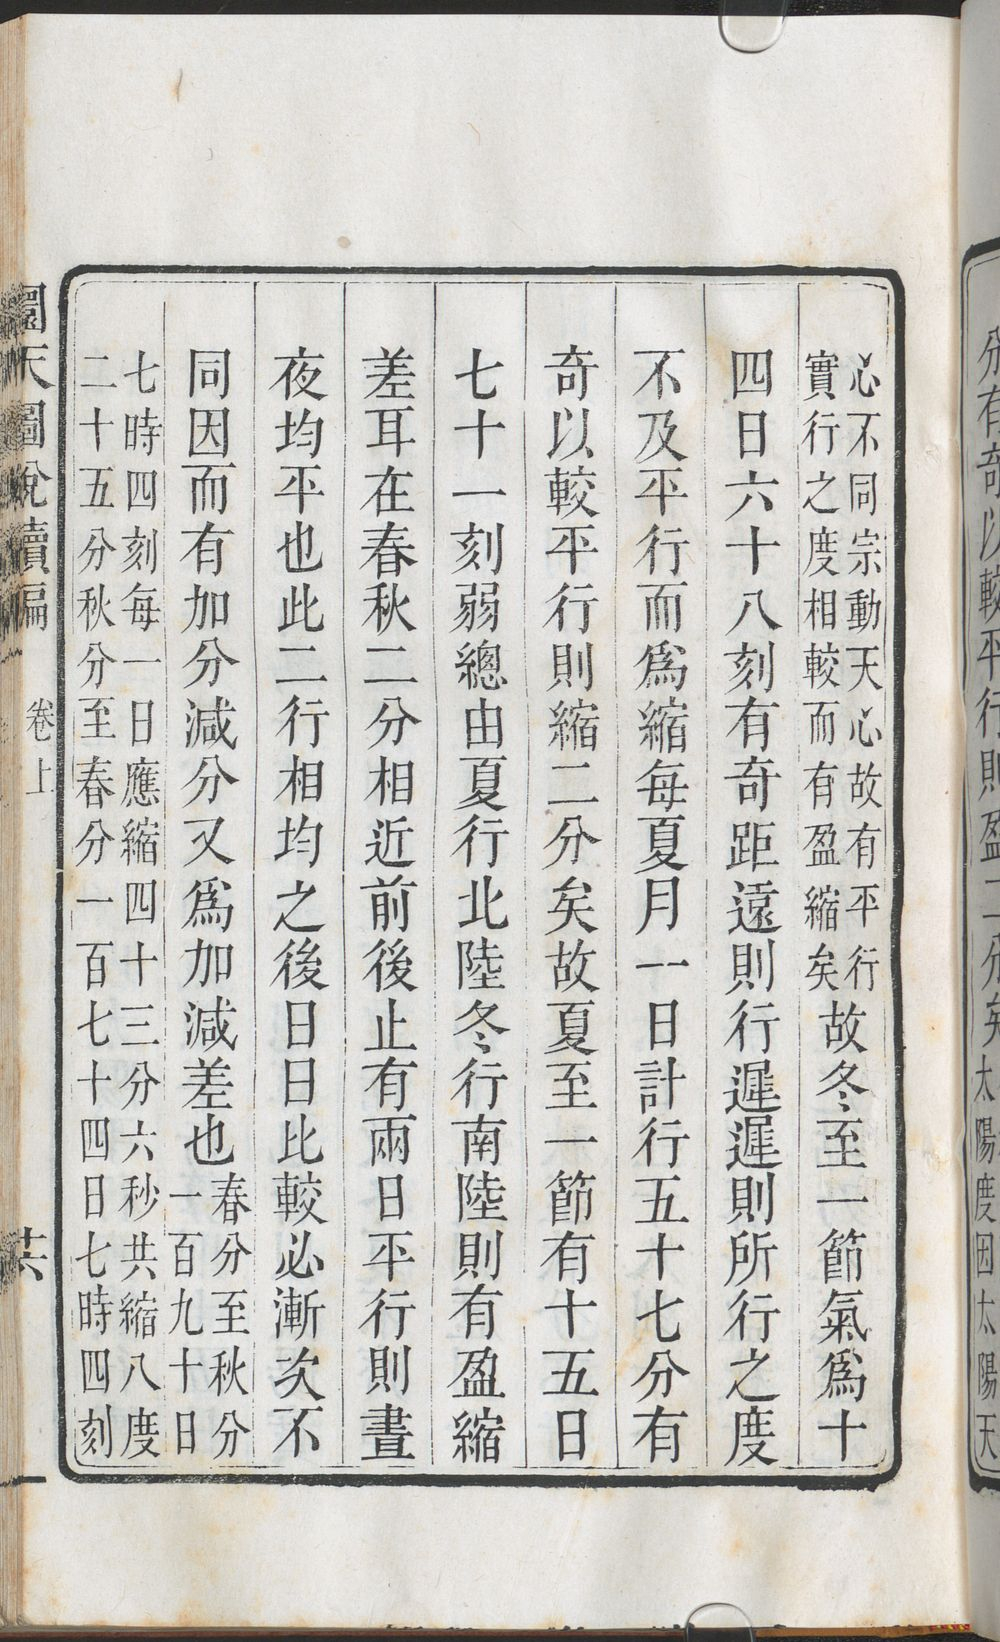 分有奇以較平行則盈二分矣太陽度因太陽天
心不同宗動天心故有平行
實行之度相較而有盈縮矣故冬至一節氣為十
四日六十八刻有奇距遠則行遲遲則所行之度
不及平行而為縮每夏月一日計行五十七分有
奇以較平行則縮二分矣故夏至一節有十五日
七十一刻弱總由夏行北陸冬行南陸則有盈縮
差耳在春秋二分相近前後止有兩日平行則晝
夜均平也此二行相均之後日日比較必漸次不
同因而有加分減分又為加減差也春分至秋分
一百九十日
七時四刻每一日應縮四十三分六秒共縮八度
二十五分秋分至春分一百七十四日七時四刻
圜天圖說續編 卷上 共